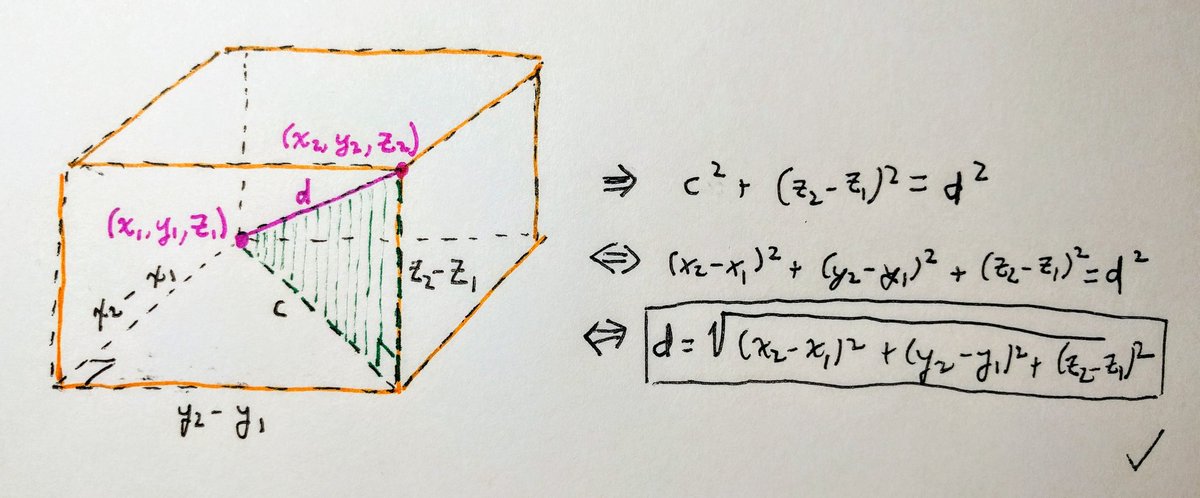 (x₂, y₂, z₂)
d
(x₁, y₁, z₁)
x₂ - x₁
c
z₂ - z₁
y₂ - y₁
⇒ c² + (z₂ - z₁)² = d²
⇔ (x₂ - x₁)² + (y₂ - y₁)² + (z₂ - z₁)² = d²
⇔ d = √(x₂ - x₁)² + (y₂ - y₁)² + (z₂ - z₁)²
✓